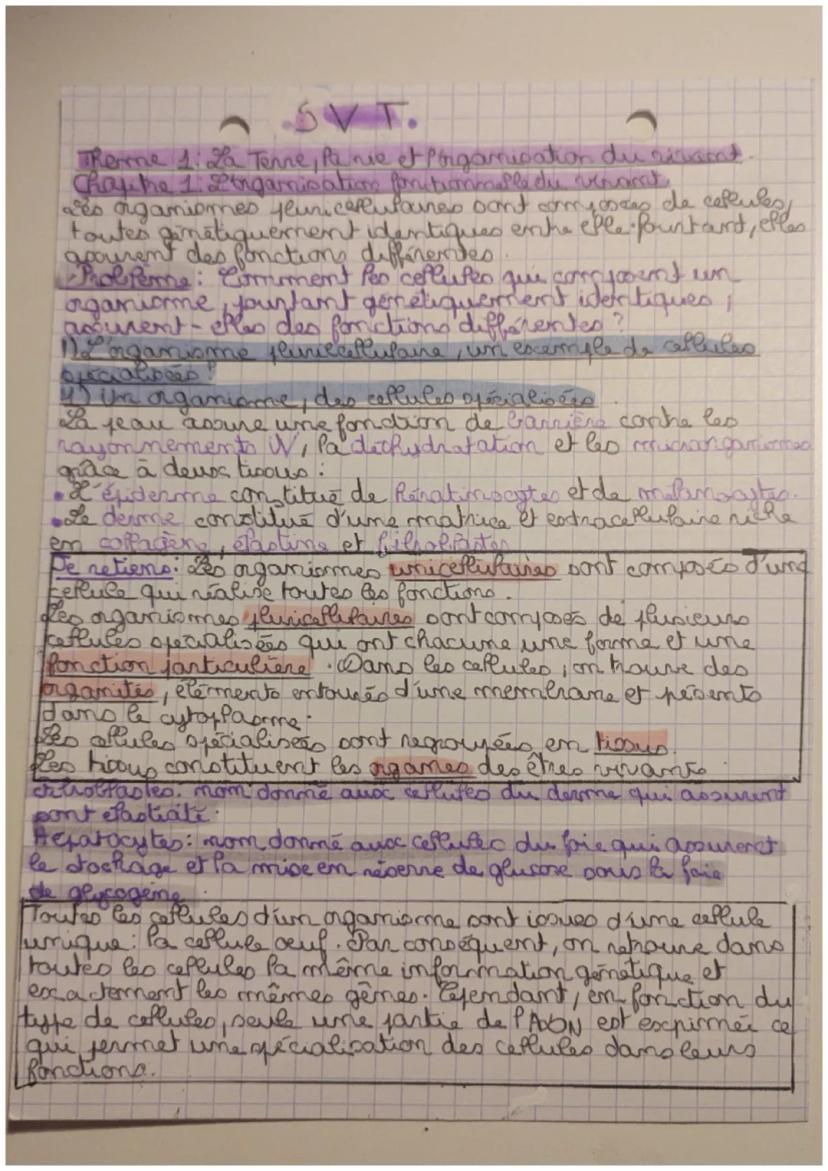 SVT.
Thème 1: La Terre, la vie et l'organisation du vivant.
Chapitre 1: L'organisation fonctionnelle du vivant.
Les organismes pluricellulaires sont composés de cellules,
toutes génétiquement identiques entre elle. Pourtant, elles
assurent des fonctions différentes.
Problème: Comment les cellules qui composent un
organisme, pourtant génétiquement identiques,
assurent-elles des fonctions différentes ?
1) L'organisme pluricellulaire, un exemple de cellules
spécialisées
un organisme, des cellules spécialisées
La peau assure une fonction de barrière contre les
rayonnements UV, la déshydratation et les microorganismes
grâce à deux tissus :
• L'épiderme constitué de kératinocytes et de mélanocytes.
• Le derme constitué d'une matrice et extracellulaire riche
en collagène, élastine et
Je retiens: Les organismes unicellulaires sont composés d'une
cellule qui réalise toutes les fonctions.
Les organismes pluricellulaires sont composés de plusieurs
cellules spécialisées qui ont chacune une forme et une
fonction particulière. Dans les cellules, on trouve des
organites, éléments entourés d'une membrane et présents
dans le cytoplasme.
Les cellules spécialisées sont regroupées en tissus.
Les tissus constituent les organes des êtres vivants.
nom donné aux cellules du derme qui assurent
sont élasticité.
Hépatocytes: nom donné aux cellules du foie qui assurent
le stockage et la mise en réserve de glucose sous la foie
de glycogène.
Toutes les cellules d'un organisme sont issues d'une cellule
unique: la cellule oeuf. Par conséquent, on retrouve dans
toutes les cellules la même information génétique et
exactement les mêmes gênes. Cependant, en fonction du
type de cellules, seule une partie de l'ADN est exprimée ce
qui permet une spécialisation des cellules dans leurs
fonctions.